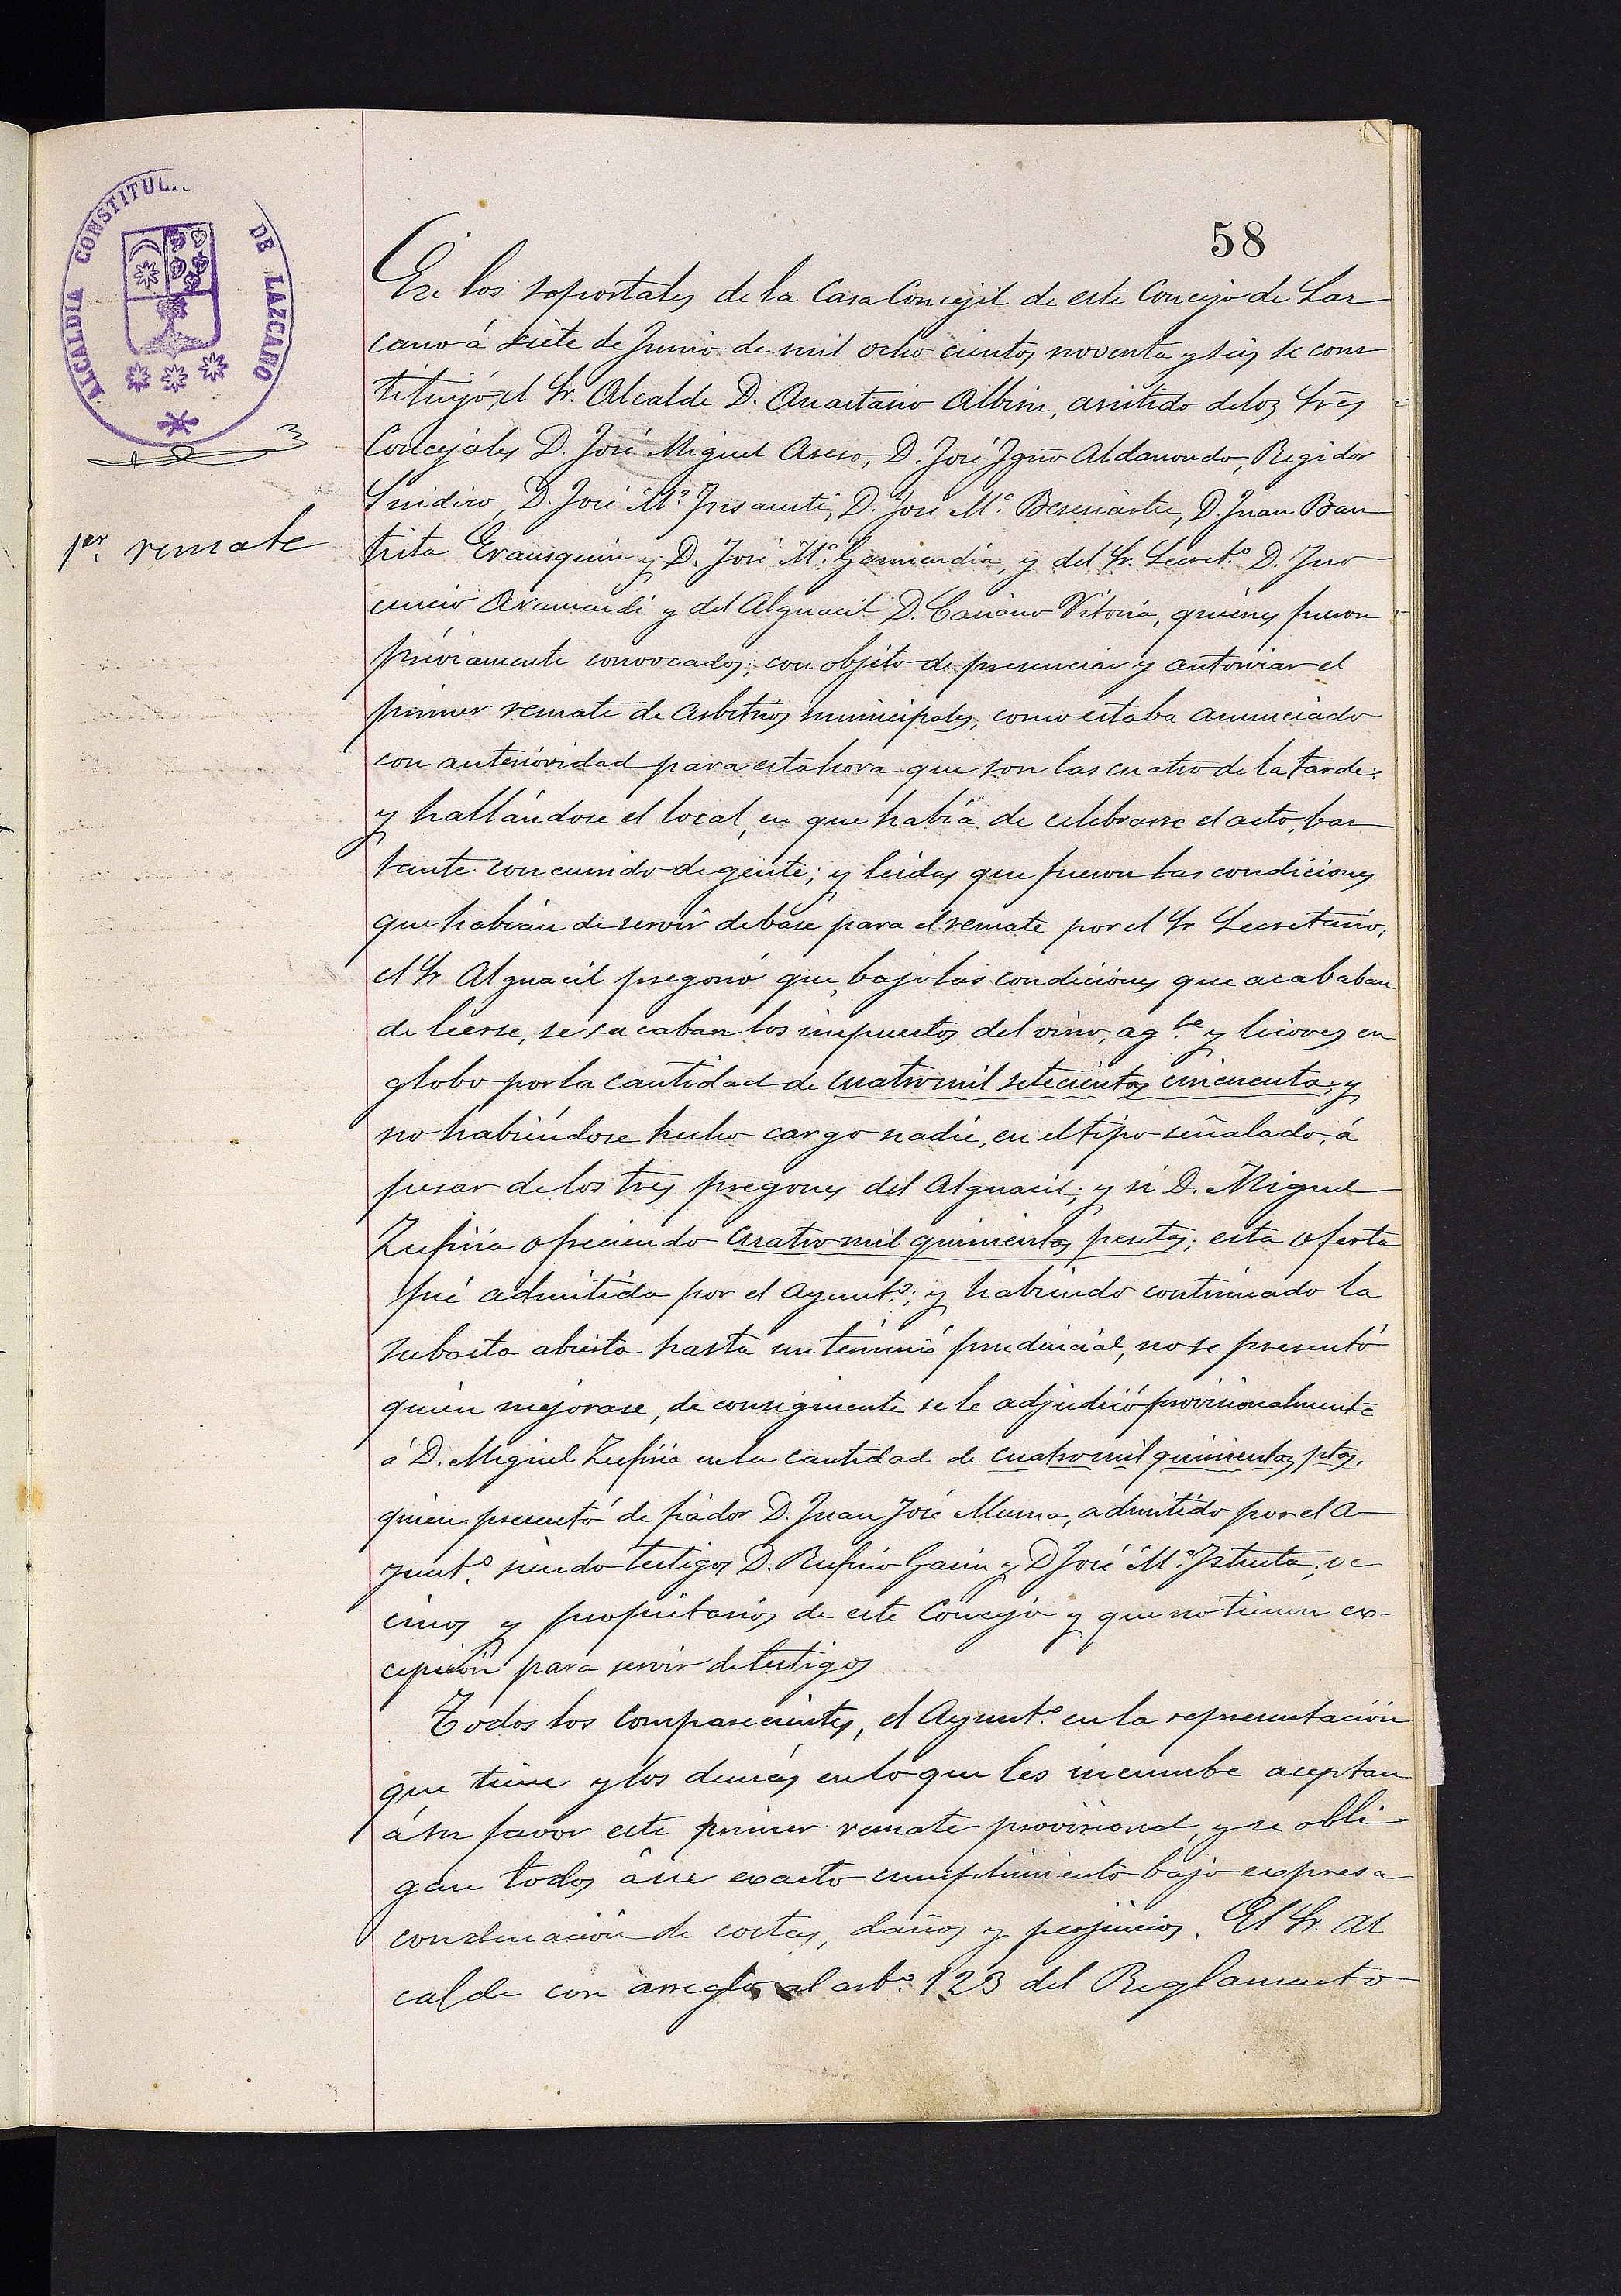 ALCALDIA CONSTITUCI DE LAZCANO
58
1er. remate
En los soportales de la Casa Concejil de este Concejo de Laz
cano á siete de Junio de mil ocho cientos noventa y seis se cons
tituyó, el Sr. Alcalde D. Anastasio Albisu, asistido de los Sres
Concejales D. José Miguel Aseso, D. José Igno Aldanondo, Regidor
Sindico, D. José Mª. D. José Mª. D. Juan Bau
tista Erausquin y D. José Mª. Garmendia, y del Sr. Secretº D. Ino
cencio Aramendi y del Alguacil D. Casiano Vitoria, quienes fueron
préviamente convocados; con objeto de presenciar y autorizar el
primer remate de arbitrios municipales, como estaba anunciado
con anterioridad para esta hora que son las cuatro de la tarde:
y hallándose el local, en que había de celebrarse el acto, bas
tante concurrido de gente; y leidas que fueron las condiciones
que habían de servir de base para el remate por el Sr Secretario,
el Sr Alguacil pregonó que, bajo las condiciones que acababan
de leerse, se sacaban los impuestos del vino, agte y licores en
globo por la cantidad de cuatro mil setecientas cincuenta; y
no habiéndose hecho cargo nadie, en el tipo señalado, á
pesar de los tres pregones del Alguacil; y si D. Miguel
Zufiria ofreciendo cuatro mil quinientas pesetas; esta oferta
fué admitida por el Ayuntº; y habiendo continuado la
subasta abierta hasta un término prudencial, no se presentó
quien mejorase, de consiguiente se le adjudicó provisionalmente
á D. Miguel Zufiria en la cantidad de cuatro mil quinientas ptas.
quien presentó de fiador D. Juan José Munoa, admitido por el A
yuntº. siendo testigos D. Rufino Garin y D José Mª. Istueta, ve
cinos y propietarios de este Concejo y que no tienen ex-
cepción para servir de testigos
Todos los comparecientes, el Ayuntº. en la representación
que tiene y los demás en lo que les incumbe aceptan
á su favor este primer remate provisional, y se obli
gan todos á su exacto cumplimiento bajo expresa
condenación de costas, daños y perjuicios. El Sr. Al
calde con arreglo al artº. 123 del Reglamento